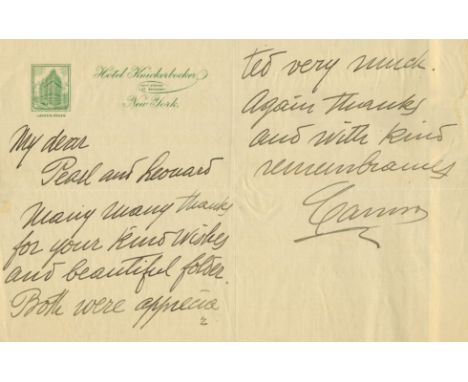 Hotel Knickerbocker
New York.
My dear
Pearl and Leonard
Many many thanks
for your kind wishes
and beautiful folder.
Both were apprecia
ted very much.
Again thanks
and with kind
remembrances